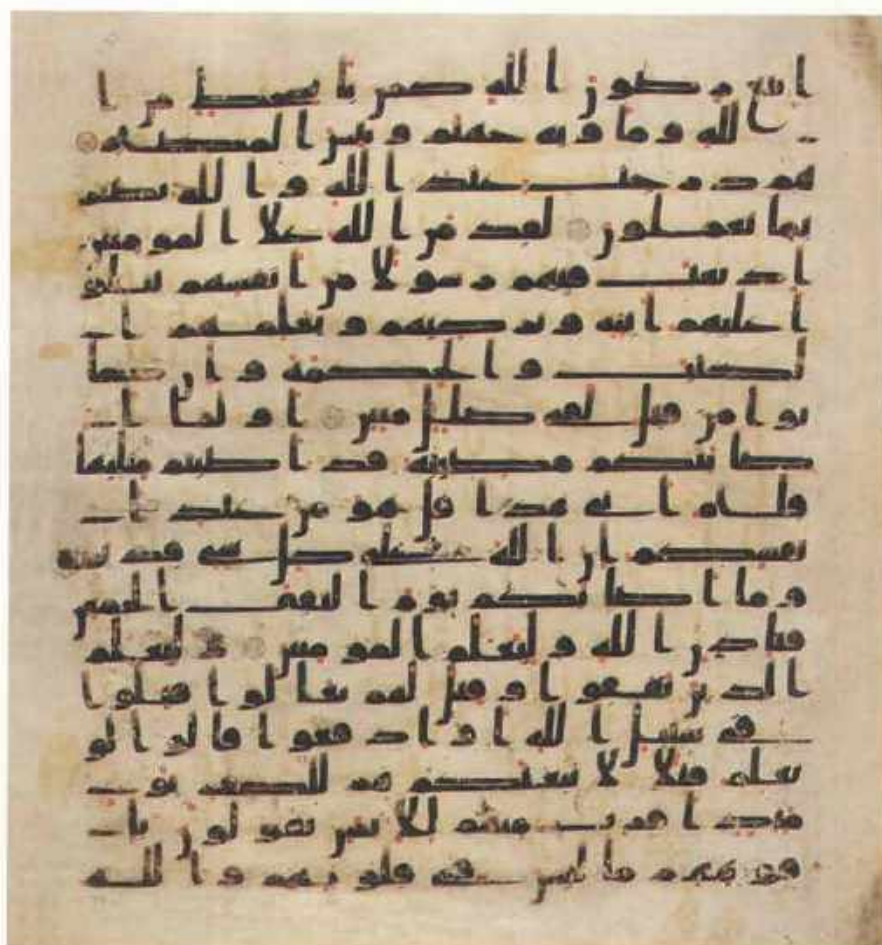 اتبع رضون الله كمن با بسخط من ا
لله وماويه جهنم وبيس المصير
هم درجت عند الله والله بصير
بما يعملون لقد من الله علا المومنين
اذ بعث فيهم رسولا من انفسهم يتلو
ا عليهم ايته ويزكيهم ويعلمهم ا
لكتب والحكمة وان كا
نوا من قبل لفي ضلل مبين اولما ا
صابتكم مصيبة قد اصبتم مثليها
قلتم اني هذا قل هو من عند ا
نفسكم ان الله علي كل شي قدير
وما اصابكم يوم التقي الجمعن
فباذن الله وليعلم المومنين وليعلم
الذين نفقوا وقيل لهم تعالوا قتلوا
في سبيل الله او ادفعوا قالوا لو
نعلم قتلا لا تبعنكم هم للكفر يو
ميذ اقرب منهم للايمن يقولون با
فوههم ما ليس في قلوبهم والله